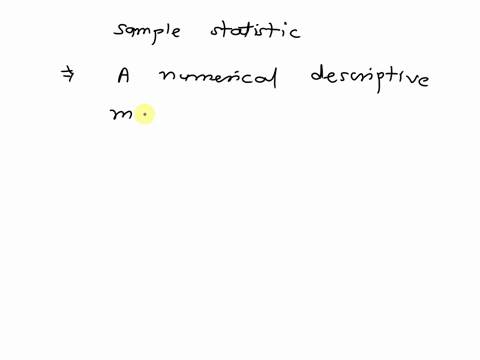 sample statistic
⇒ A numerical descriptive
m